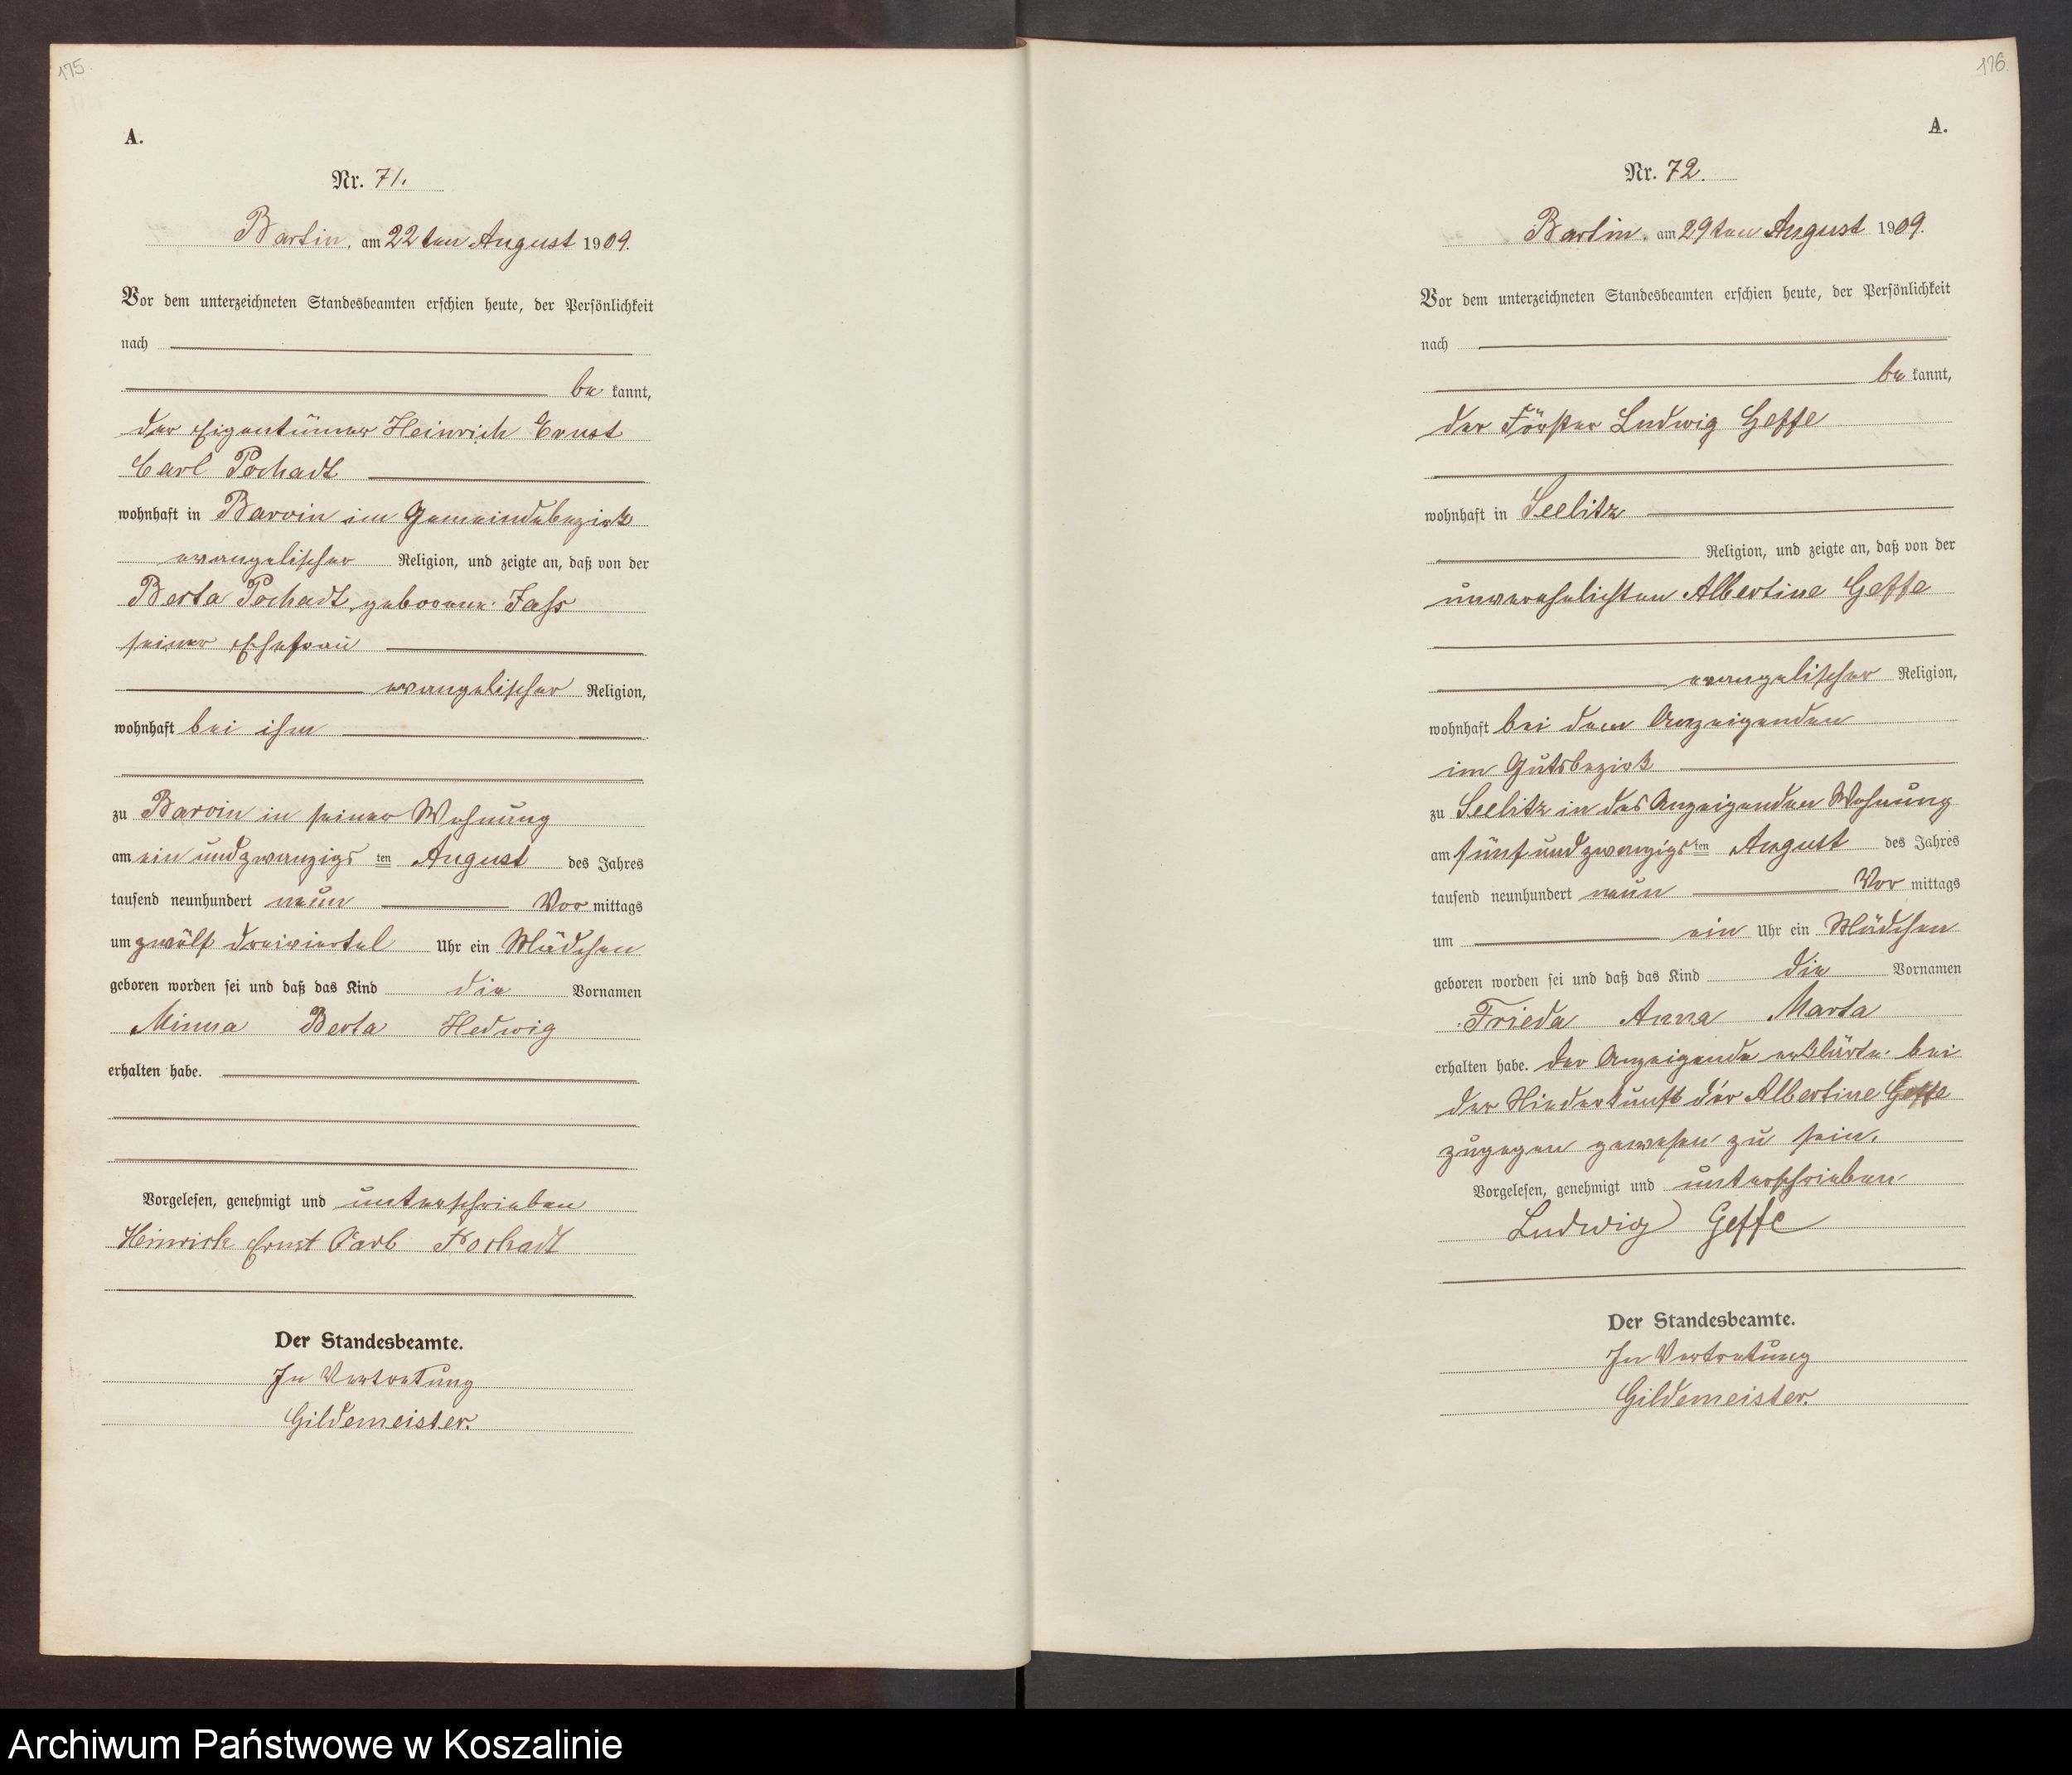 175.
A.
Nr. 71.
Bartin, am 22ten August 1909.
Vor dem unterzeichneten Standesbeamten erschien heute, der Persönlichkeit
nach
be kannt,
der Eigentümer Heinrich Ernst
Carl Pochadt
wohnhaft in Barvin im Gemeindebezirk
evangelischer Religion, und zeigte an, daß von der
Berta Pochadt geborene Fass
seiner Ehefrau
evangelischer Religion,
wohnhaft bei ihm
zu Barvin in seiner Wohnung
am ein und zwanzigs ten August des Jahres
tausend neunhundert neun Vor mittags
um zwölf dreiviertel Uhr ein Mädchen
geboren worden sei und daß das Kind die Vornamen
Minna Berta Hedwig
erhalten habe.
Vorgelesen, genehmigt und unterschrieben
Heinrich Ernst Carl Pochadt
Der Standesbeamte.
In Vertretung
Gildemeister.
176.
A.
Nr. 72.
Bartin, am 29ten August 1909.
Vor dem unterzeichneten Standesbeamten erschien heute, der Persönlichkeit
nach
be kannt,
der Förster Ludwig Geffe
wohnhaft in Seelitz
Religion, und zeigte an, daß von der
unverehelichten Albertine Geffe
evangelischer Religion,
wohnhaft bei dem Anzeigenden
im Gutsbezirk
zu Seelitz in des Anzeigenden Wohnung
am fünf und zwanzigs ten August des Jahres
tausend neunhundert neun Vor mittags
um ein Uhr ein Mädchen
geboren worden sei und daß das Kind die Vornamen
Frieda Anna Marta
erhalten habe. Der Anzeigende erklärte bei
der Niederkunft der Albertine Geffe
zugegen gewesen zu sein.
Vorgelesen, genehmigt und unterschrieben
Ludwig Geffe
Der Standesbeamte.
In Vertretung
Gildemeister.
Archiwum Państwowe w Koszalinie